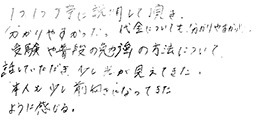 1つ1つ丁寧に説明して頂き、
分かりやすかった。代金についても、分かりやすかった。
受験や普段の勉強の方法について
話していただき少し光が見えてきた。
本人も少し前向きになってきた
ように感じる。